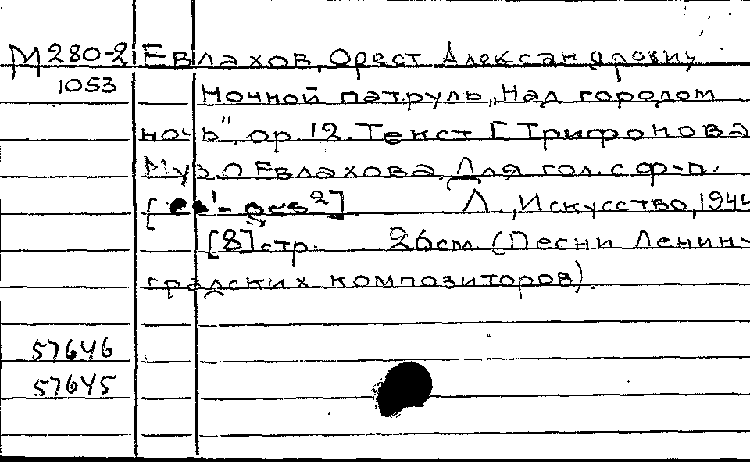 М280-2 Евлахов, Орест Александрович
1053 Ночной патруль „Над городом
ночь", ор. 12. Текст [Трифонова
Муз. О Евлахова. Для гол. с ф-п.
Л., Искусство, 1944
[8] стр. 26см. (Песни Ленин-
градских композиторов).
57646
57645